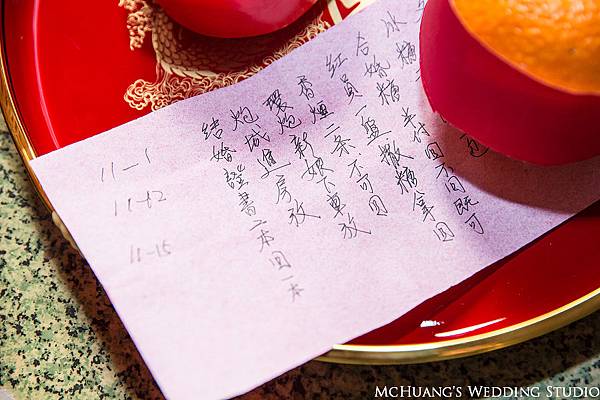 冰糖一
合婚糖半付回不回既可
紅員一盤撒糖拿回
香煙二条不可回
環炮新娘下車放
炮城進房放
結婚證書二本回一本
11-1
11-12
11-15
McHuang's Wedding Studio